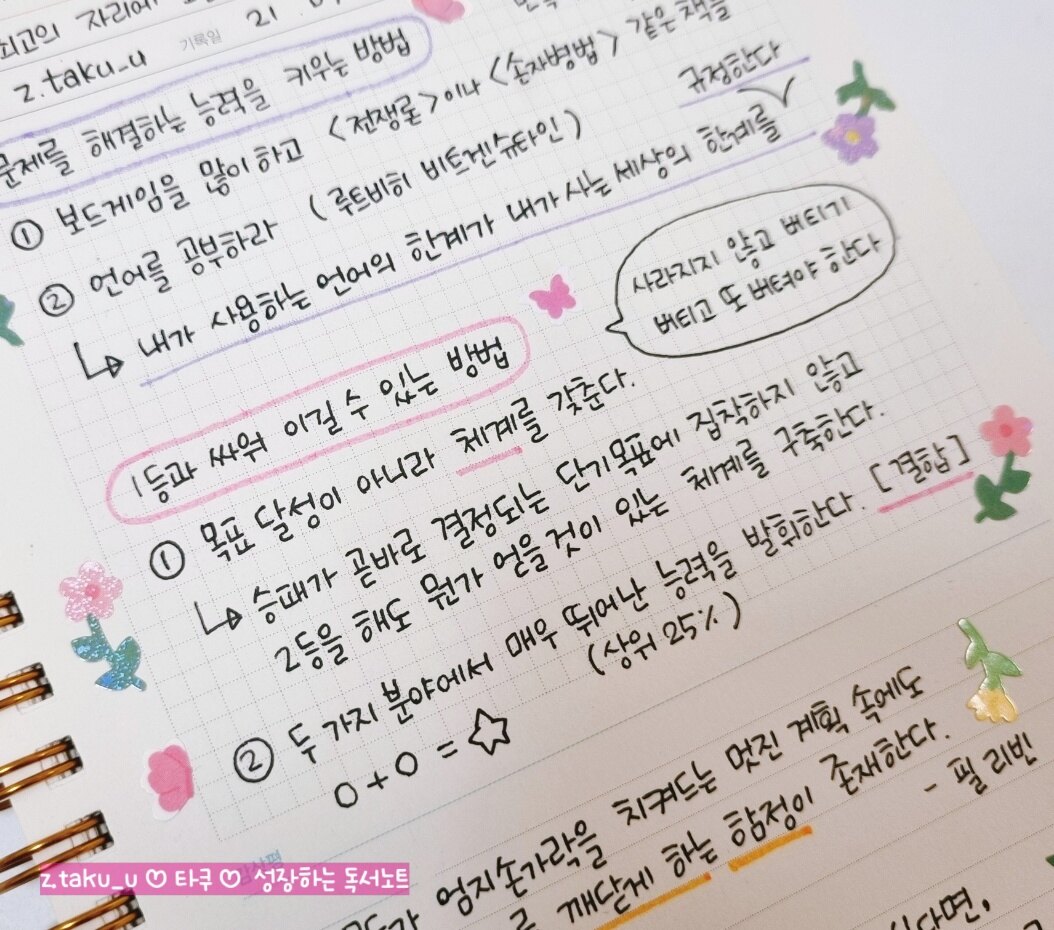 최고의 자리에
z.taku_u
기록일 21
문제를 해결하는 능력을 키우는 방법
① 보드게임을 많이하고 <전쟁론>이나 <손자병법> 같은 책을
② 언어를 공부하라 (루트비히 비트겐슈타인) 규정한다
↳ 내가 사용하는 언어의 한계가 내가 사는 세상의 한계를
사라지지 않고 버티기
버티고 또 버텨야 한다
1등과 싸워 이길 수 있는 방법
① 목표 달성이 아니라 체계를 갖춘다.
↳ 승패가 곧바로 결정되는 단기목표에 집착하지 않고
2등을 해도 뭔가 얻을것이 있는 체계를 구축한다.
② 두 가지 분야에서 매우 뛰어난 능력을 발휘한다. [결합]
(상위 25%)
O + O = ☆
엄지손가락을 치켜드는 멋진 계획 속에도
깨닫게 하는 함정이 존재한다.
- 필 리빈
z.taku_u ♡ 타쿠 ♡ 성장하는 독서노트